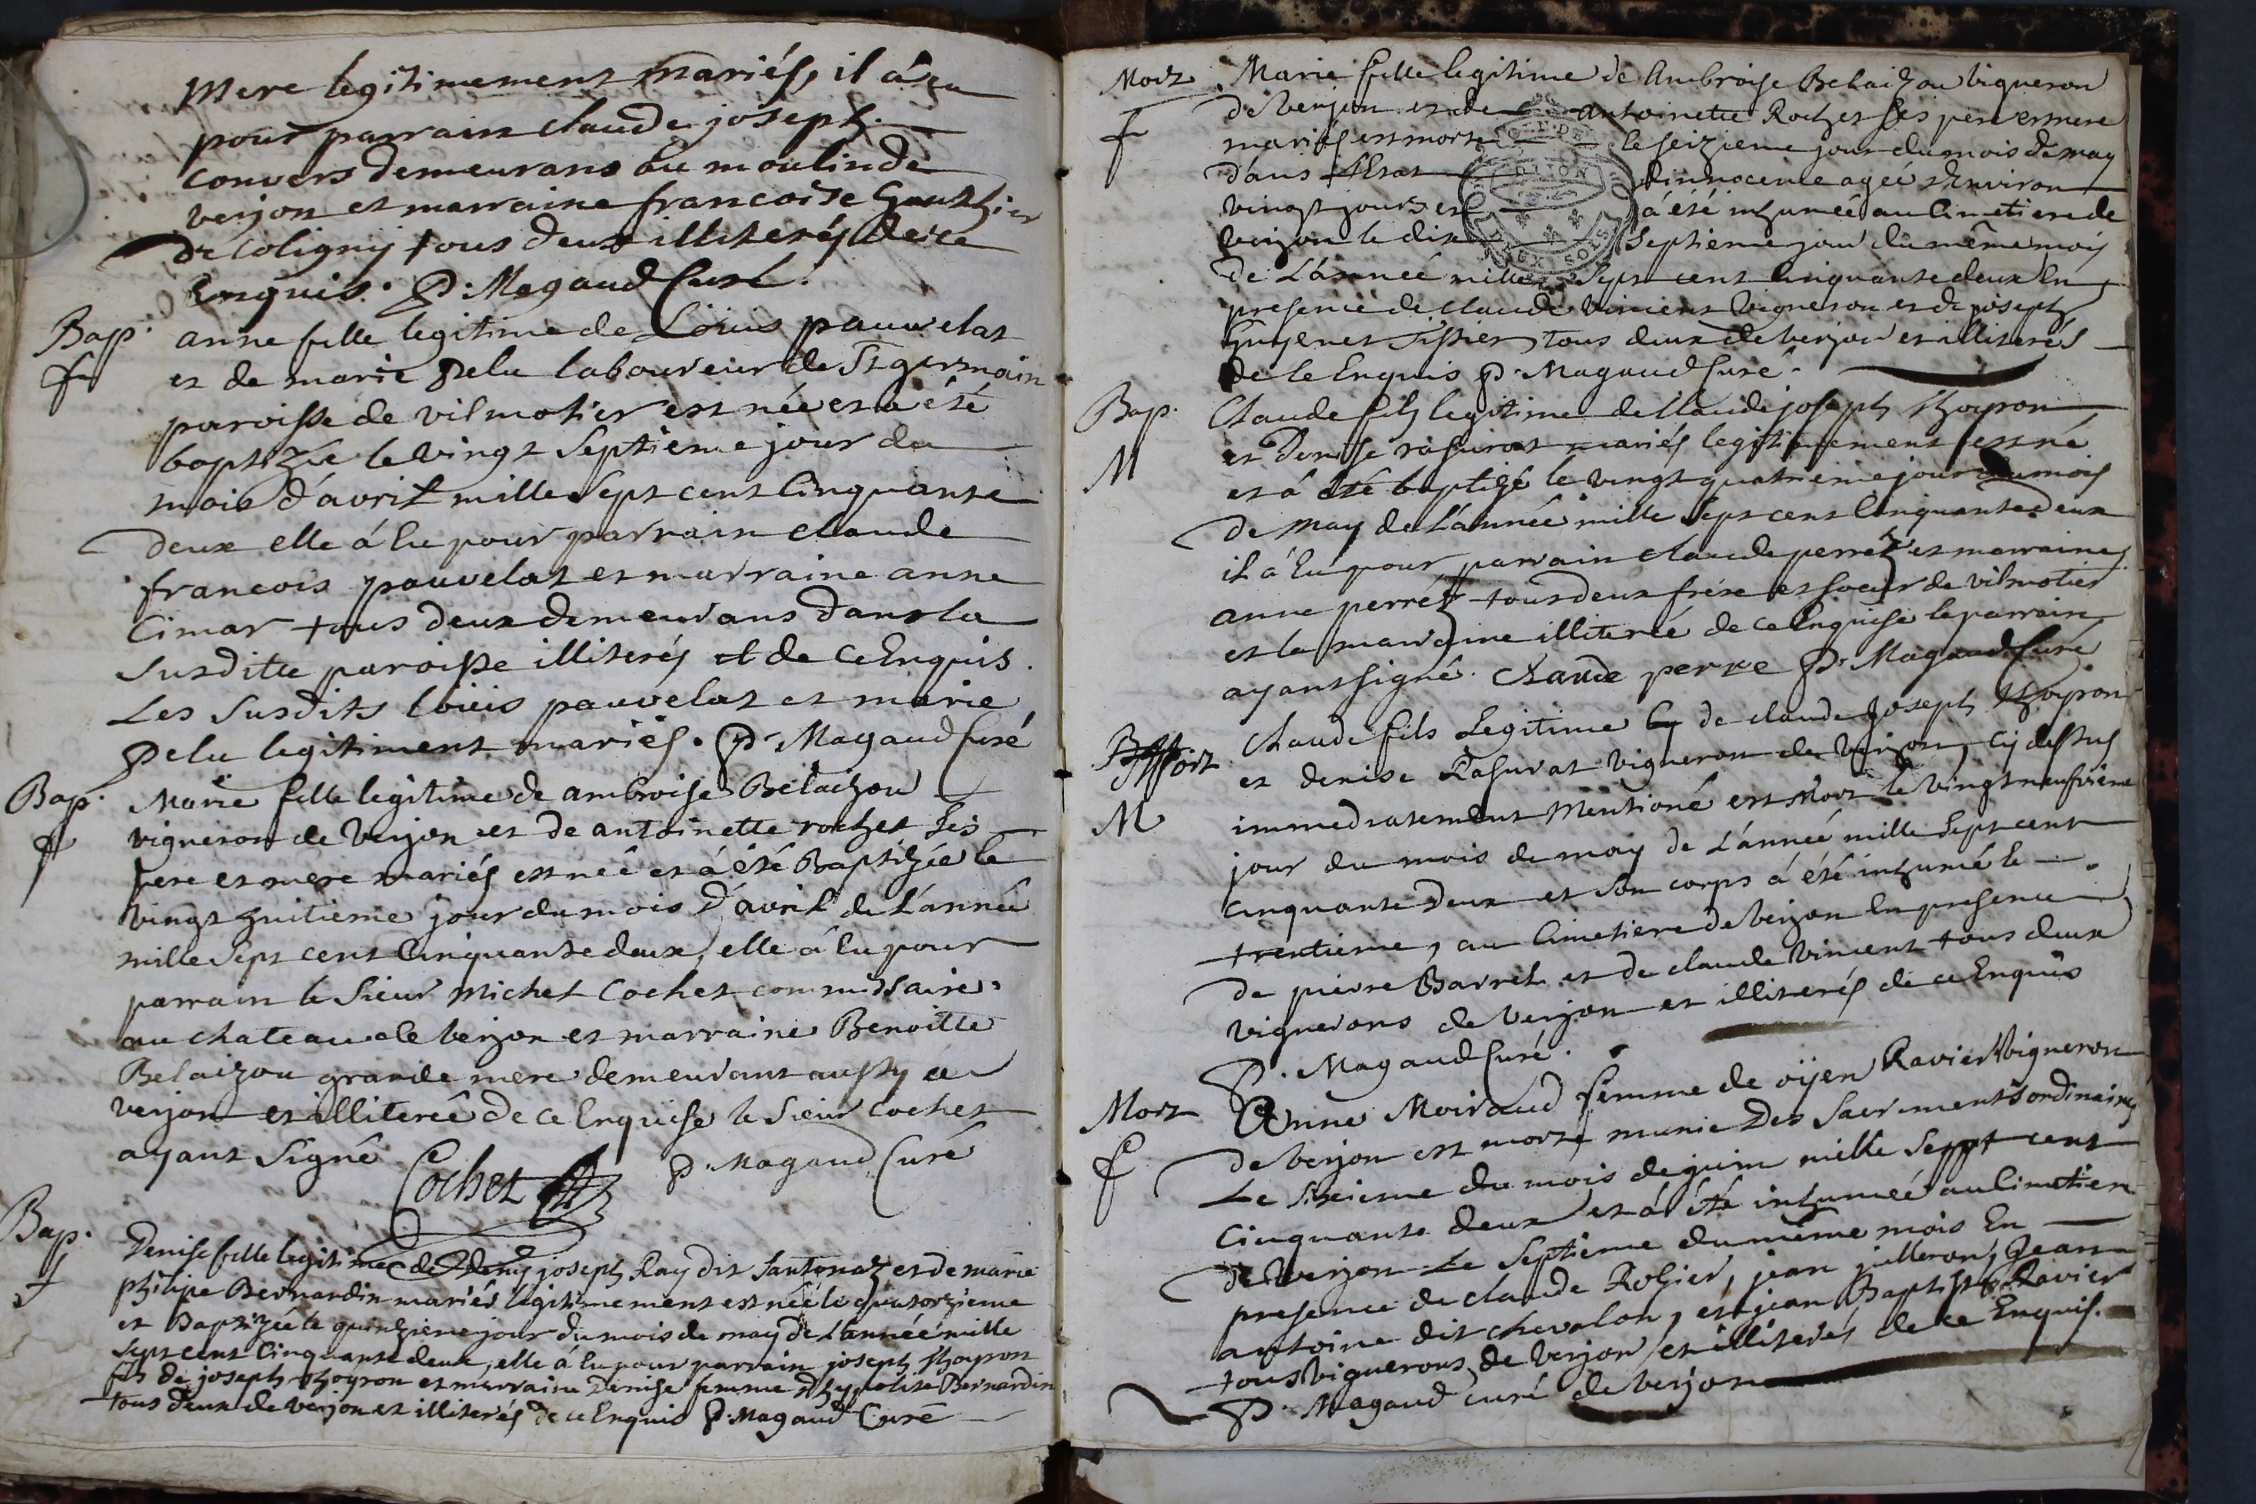 mere legitimement mariés, il á eu
pour parrain claude joseph
convers demeurans au moulin de
verjon et marraine francoise Gauthier
de Coligny tous deux illiterés de ce
Enquis. P. Magaud Curé.
Bap. f
anne fille legitime de Loüis pauvelat
et de marie Pelu laboureur de St germain
paroisse de vilmotier est née et a été
baptizée le vingt Septieme jour du
mois d'avril mille Sept cent Cinquante
deux elle á Eu pour parrain claude
francois pauvelat et marraine anne
Cimar tous deux demeurans dans la
Susditte paroisse illiterés et de ce Enquis.
Les Susdits loüis pauvelat et marie
Pelu legitiment mariés. P. Magaud Curé
Bap. f
Marie fille legitime de ambroise Belaizou
vigneron de Verjon et de antoinette rochet Ses
pere et mere mariés est neé et á été Baptizée le
vingt huitieme jour du mois d'avril de L'année
mille Sept cent Cinquante deux, elle á Eu pour
parrain le Sieur Michel Cochet commissaire
au chateau de Verjon et marraine Benoitte
Belaizou grande mere demeurant aussy a
verjon et illitereé de ce Enquise le Sieur Cochet
ayant Signé Cochet P. Magaud Curé
Bap. f
Denise fille legitime de joseph Ray dit Santonaz et de marie
philipe Bernardin mariés legitimement est née le quatorzieme
et Baptizée le quinzieme jour du mois de may de L'année mille
Sept cent Cinquante deux, elle á Eu pour parrain joseph thoyron
fils de joseph thoyron et marraine Denise femme d'hypolite Bernardin
tous deux de verjon et illiterés de ce Enquis P. Magaud Curé
Mort f
Marie fille legitime de Ambroise Belaizou vigneron
de verjon et de antoinette Rochet Ses pere et mere
mariés est morte le seizieme jour du mois de may
dans L'Etat d'innocence ageé d'Environ
vingt jours et á été inhumée au Cimetiere de
Verjon le dix Septieme jour du même mois
de L'année mille Sept cent Cinquante deux En
presence de claude vincent vigneron et de joseph
Guyenet tissier, tous deux de verjon et illiterés
de Ce Enquis P. Magaud Curé.
Bap. M
Claude fils legitime de Claude joseph thoyron
et Denise rasurat mariés legitimement est né
et á été baptizé le vingt quatrieme jour du mois
de may de L'année mille Sept cent Cinquante deux
il á Eu pour parrain claude perret et marraine
anne perret tous deux frere et Soeur de vilmotier
et la marraine illitereé de ce Enquise le parrain
ayant Signé. Claude perre P. Magaud Curé
Mort M
Claude fils Legitime de claude Joseph thoyron
et denise Rasurat vigneron de Verjon, Cy dessus
immediatement Mentioné est Mort le vingt neufvieme
jour du mois de may de L'année mille Sept cent
Cinquante Deux et Son corps á été inhumé le
trentieme, au Cimetiere de Verjon En presence
de pierre Barret et de claude Vincent tous deux
vignerons de verjon et illiterés de ce Enquis
P. Magaud Curé.
Mort f
Anne Moiraud femme de oÿen Ravier Vigneron
de verjon est morte munie Des Sacrements ordinaires
Le Sixieme du mois de juin mille Sept cent
Cinquante deux et á été inhumeé au Cimetiere
de Verjon Le Septieme du même mois En
presence de claude Rozier, jean julleron, Jean
antoine dit chevalon, et jean Baptiste Ravier
tous Vignerons de Verjon et illiterés de ce Enquis.
P. Magaud curé de verjon